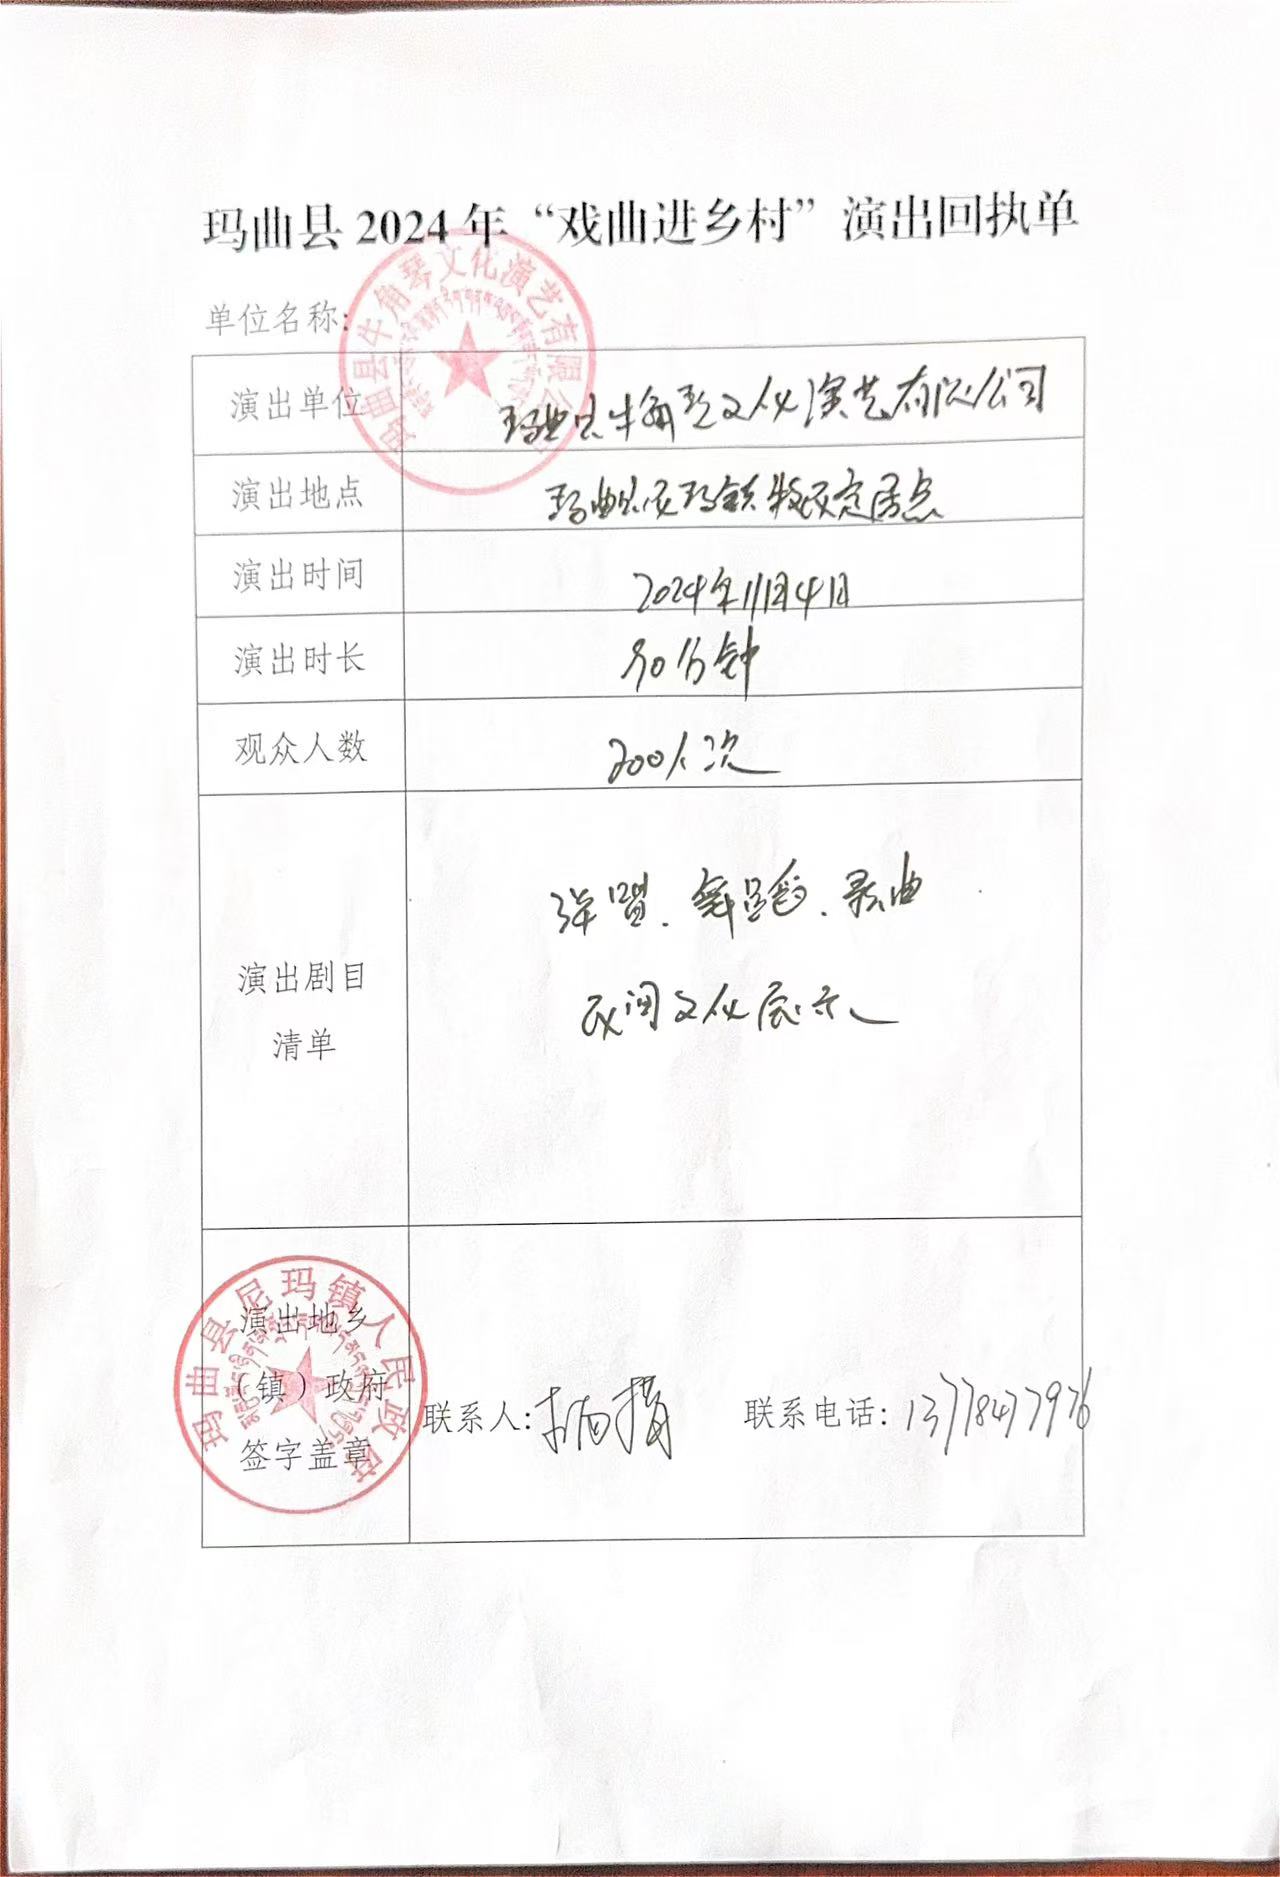 玛曲县2024年“戏曲进乡村”演出回执单
单位名称:
玛曲县牛角琴文化演艺有限公
演出单位 玛曲县牛角琴文化演艺有限公司
演出地点 玛曲县尼玛镇牧民定居点
演出时间 2024年11月4日
演出时长 90分钟
观众人数 200人次
演出剧目清单
弹唱、舞蹈、歌曲
民间文化展示
玛曲县尼玛镇人民政府
演出地乡
（镇）政府
签字盖章
联系人: 联系电话: 13778477976